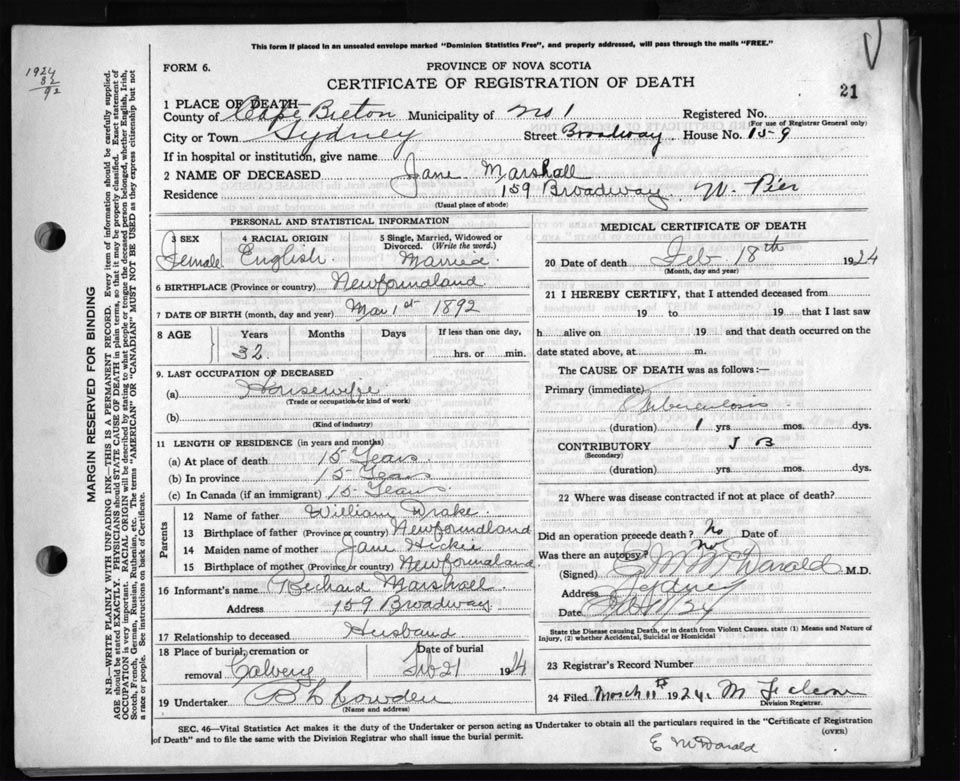 This form if placed in an unsealed envelope marked "Dominion Statistics Free", and properly addressed, will pass through the mails "FREE."
1924
32
92
FORM 6.
PROVINCE OF NOVA SCOTIA
CERTIFICATE OF REGISTRATION OF DEATH
21
MARGIN RESERVED FOR BINDING
N.B.—WRITE PLAINLY WITH UNFADING INK—THIS IS A PERMANENT RECORD. Every item of information should be carefully supplied.
AGE should be stated EXACTLY. PHYSICIANS should STATE CAUSE OF DEATH in plain terms, so that it may be properly classified. Exact statement of
OCCUPATION is very important. RACIAL ORIGIN will be described by stating to what people or tongue the deceased person belonged, whether English, Irish,
Scotch, French, German, Russian, Ruthenian, etc. The terms "AMERICAN" OR "CANADIAN" MUST NOT BE USED as they express citizenship but not
a race or people. See instructions on back of Certificate.
1 PLACE OF DEATH—
County of Cape Breton Municipality of No 1 Registered No.
(For use of Registrar General only)
City or Town Sydney Street Broadway House No. 159
If in hospital or institution, give name
2 NAME OF DECEASED Jane Marshall
Residence 159 Broadway. W. Pier
(Usual place of abode)
PERSONAL AND STATISTICAL INFORMATION
3 SEX 4 RACIAL ORIGIN 5 Single, Married, Widowed or Divorced. (Write the word.)
Female English Married
6 BIRTHPLACE (Province or country) Newfoundland
7 DATE OF BIRTH (month, day and year) Mar 1st 1892
8 AGE Years Months Days If less than one day,
32 hrs. or min.
9. LAST OCCUPATION OF DECEASED
(a) Housewife
(Trade or occupation or kind of work)
(b)
(Kind of industry)
11 LENGTH OF RESIDENCE (in years and months)
(a) At place of death 15 Years
(b) In province 15 Years
(c) In Canada (if an immigrant) 15 Years
Parents
12 Name of father William Drake
13 Birthplace of father (Province or country) Newfoundland
14 Maiden name of mother Jane Hickie
15 Birthplace of mother (Province or country) Newfoundland
16 Informant's name Richard Marshall
Address 159 Broadway
17 Relationship to deceased Husband
18 Place of burial, cremation or removal Date of burial
Calvery Feb 21 1924
19 Undertaker
(Name and address)
MEDICAL CERTIFICATE OF DEATH
20 Date of death Feb 18th 1924
(Month, day and year)
21 I HEREBY CERTIFY, that I attended deceased from
19 to 19 that I last saw
h alive on 19 and that death occurred on the
date stated above, at m.
The CAUSE OF DEATH was as follows:—
Primary (immediate)
Tuberculosis
(duration) 1 yrs. mos. dys.
CONTRIBUTORY
(Secondary)
J B
(duration) yrs. mos. dys.
22 Where was disease contracted if not at place of death?
Did an operation precede death? No Date of
Was there an autopsy? No
(Signed) McDonald M.D.
Address Sydney
Date
State the Disease causing Death, or in death from Violent Causes, state (1) Means and Nature of
Injury, (2) whether Accidental, Suicidal or Homicidal
23 Registrar's Record Number
24 Filed March 11 1924
Division Registrar.
SEC. 46—Vital Statistics Act makes it the duty of the Undertaker or person acting as Undertaker to obtain all the particulars required in the "Certificate of Registration
of Death" and to file the same with the Division Registrar who shall issue the burial permit.
(OVER)